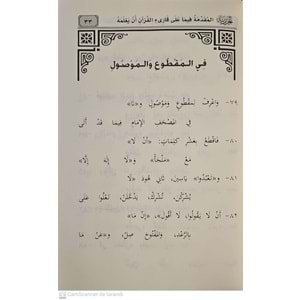 المقدمة فيما على قارئ القرآن أن يعلمه
٣٣
في المقطوع والموصول
٧٩- واعرف لمقطوع وموصول و«تا»
في المصحف الإمام فيما قد أتى
٨٠- فاقطع بعشر كلمات: «أن لا»
مع «ملجأ» و«لا إله إلا»
٨١- و«تعبدوا» ياسين، ثاني هود «لا
يشركن، تشرك، يدخلن، تعلوا على
٨٢- أن لا يقولوا، لا أقول»، «إن ما»
بالرعد، والمفتوح صل، و«عن ما